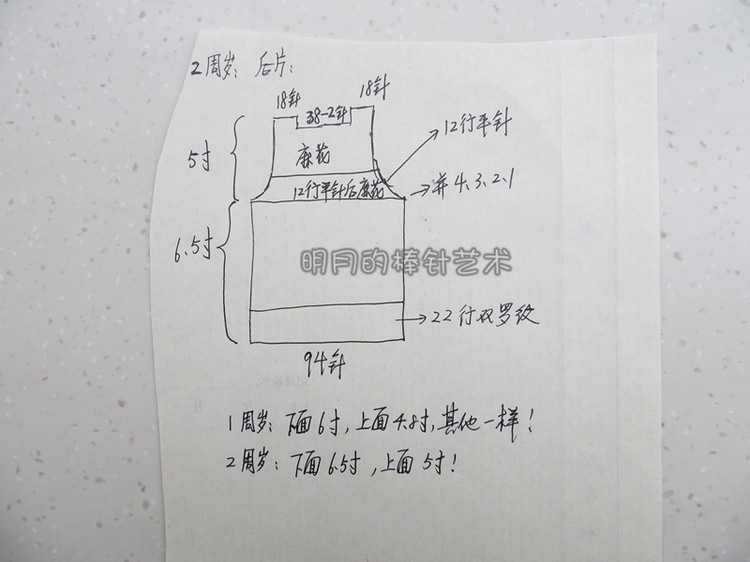 2周岁： 后片：
18针
18针
38-2针
12行平针
5寸
麻花
12行平针后麻花
并4.3.2.1
6.5寸
明月的棒针艺术
22行双罗纹
94针
1周岁：下面6寸，上面4.8寸，其他一样！
2周岁：下面6.5寸，上面5寸！